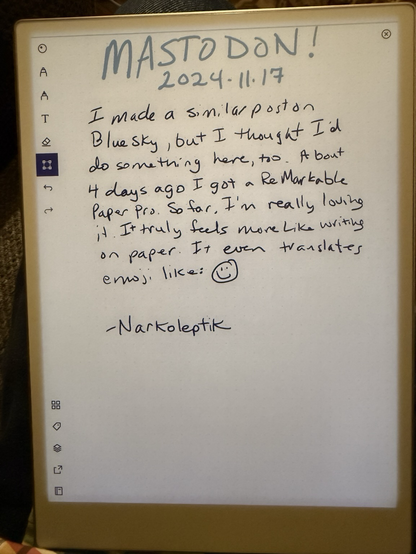 MASTODON!
2024.11.17
I made a similar post on
Bluesky, but I thought I'd
do something here, too. About
4 days ago I got a ReMarkable
Paper Pro. So far, I'm really loving
it. It truly feels more like writing
on paper. It even translates
emoji like: ☺
-Narkoleptik